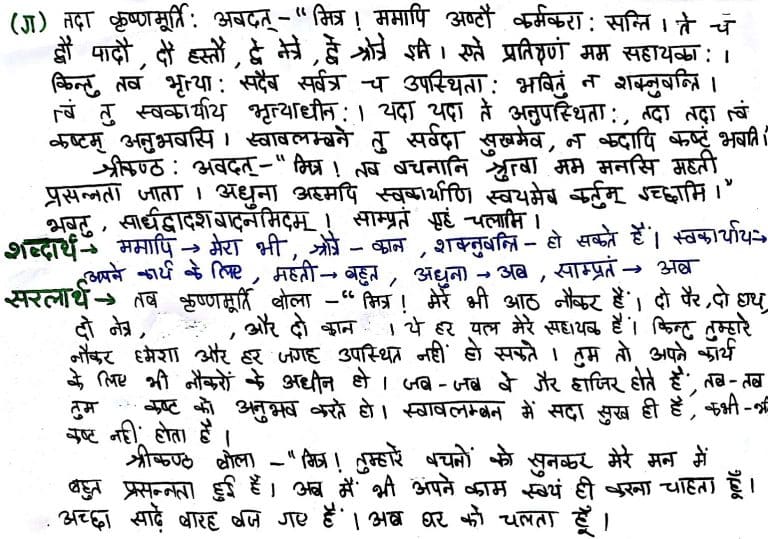 (ग) तदा कृष्णमूर्तिः अवदत् - "मित्र ! ममापि अष्टौ कर्मकराः सन्ति । ते च
द्वौ पादौ, दौ हस्तौ, द्वे नेत्रे, द्वे श्रोत्रे इति । एते प्रतिक्षणं मम सहायकाः ।
किन्तु तव भृत्याः सदैव सर्वत्र च उपस्थिताः भवितुं न शक्नुवन्ति ।
त्वं तु स्वकार्याय भृत्याधीनः । यदा यदा ते अनुपस्थिताः, तदा तदा त्वं
कष्टम् अनुभवसि । स्वावलम्बने तु सर्वदा सुखमेव, न कदापि कष्टं भवति ।
श्रीकण्ठः अवदत् - "मित्र ! तव वचनानि श्रुत्वा मम मनसि महती
प्रसन्नता जाता । अधुना अहमपि स्वकार्याणि स्वयमेव कर्तुम् इच्छामि ।"
भवतु, सार्धद्वादशवादनमिदम् । साम्प्रतं गृहं चलामि ।
शब्दार्थ → ममापि → मेरा भी, श्रोत्रे - कान, शक्नुवन्ति - हो सकते हैं । स्वकार्याय →
अपने कार्य के लिए, महती → बहुत, अधुना → अब, साम्प्रतं → अब
सरलार्थ → तब कृष्णमूर्ति बोला - "मित्र ! मेरे भी आठ नौकर हैं । दो पैर, दो हाथ,
दो नेत्र, , और दो कान । ये हर पल मेरे सहायक हैं । किन्तु तुम्हारे
नौकर हमेशा और हर जगह उपस्थित नहीं हो सकते । तुम तो अपने कार्य
के लिए भी नौकरों के अधीन हो । जब-जब वे गैर हाजिर होते हैं, तब-तब
तुम कष्ट का अनुभव करते हो । स्वावलम्बन में सदा सुख ही है, कभी-भी
कष्ट नहीं होता है ।
श्रीकण्ठ बोला - "मित्र ! तुम्हारे वचनों को सुनकर मेरे मन में
बहुत प्रसन्नता हुई है । अब मैं भी अपने काम स्वयं ही करना चाहता हूँ ।
अच्छा साढ़े बारह बज गए हैं । अब घर को चलता हूँ ।